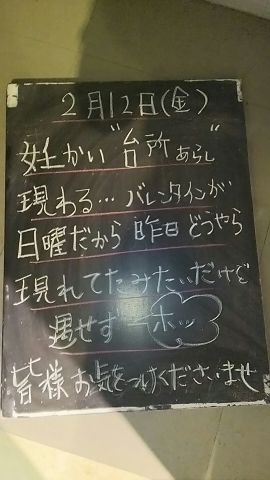 2月12日(金)
妖かい"台所あらし"
現わる…バレンタインが
日曜だから昨日どうやら
現れてたみたいだけど
遇せず ホッ
皆様お気をつけくださいませ